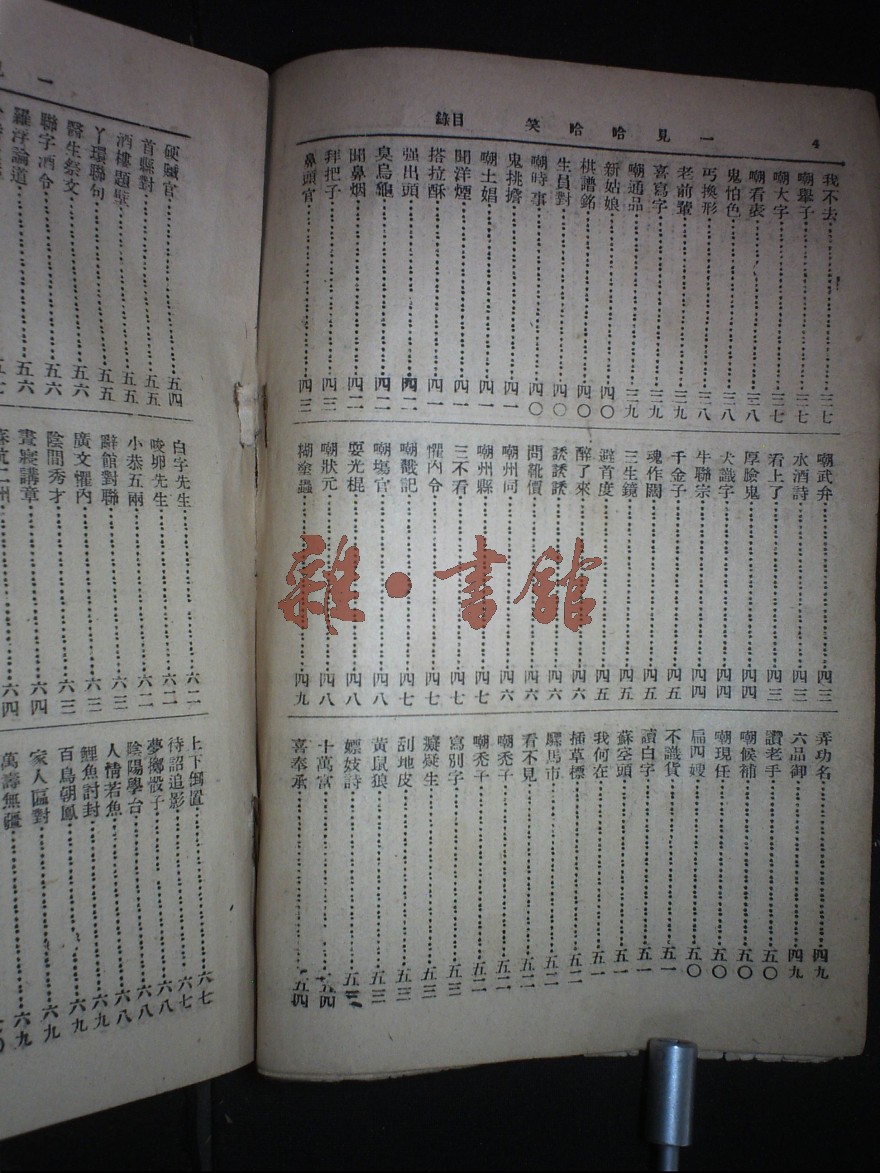 4 一見哈哈笑 目錄
我不去 三七
嘲舉子 三七
嘲大字 三七
嘲看表 三八
鬼怕色 三八
丐換形 三八
老前輩 三九
喜寫字 三九
嘲通品 三九
新姑娘 四〇
棋譜銘 四〇
生員對 四〇
嘲時事 四〇
鬼挑擔 四一
嘲土娼 四一
聞洋煙 四一
搭拉酥 四一
强出頭 四二
臭烏龜 四二
聞鼻烟 四二
拜把子 四三
鼻頭官 四三
嘲武弁 四三
水酒詩 四三
看上了 四三
厚臉鬼 四四
犬識字 四四
牛聯宗 四四
千金子 四五
魂作鬧 四五
三生鏡 四五
避首度 四五
醉了來 四六
誘誘誘 四六
問靴價 四六
嘲州同 四六
嘲州縣 四七
三不看 四七
懼內令 四七
嘲戳記 四七
嘲塲官 四八
耍光棍 四八
嘲狀元 四八
糊塗蟲 四九
弄功名 四九
六品御 四九
讚老手 五〇
嘲候補 五〇
嘲現任 五〇
扁四嫂 五〇
不識貨 五一
讀白字 五一
蘇空頭 五一
我何在 五一
插草標 五二
騾馬市 五二
看不見 五二
嘲禿子 五二
嘲禿子 五二
寫別字 五三
癡疑生 五三
刮地皮 五三
黃鼠狼 五三
嫖妓詩 五三
十萬富 五四
喜奉承 五四
一見
硬贓官 五四
首縣對 五五
酒樓題壁 五五
丫環聯句 五五
醫生祭文 五六
聯字酒令 五六
羅浮論道 五六
五七
白字先生 六二
唆卵先生 六二
小恭五兩 六二
辭館對聯 六三
廣文懼內 六三
陰間秀才 六三
晝寢講章 六四
六四
上下倒置 六七
待詔追影 六七
夢擲骰子 六八
陰陽學台 六八
人情若魚 六八
鯉魚討封 六九
百鳥朝鳳 六九
家人區對 六九
萬壽無疆 六九
雜·書館